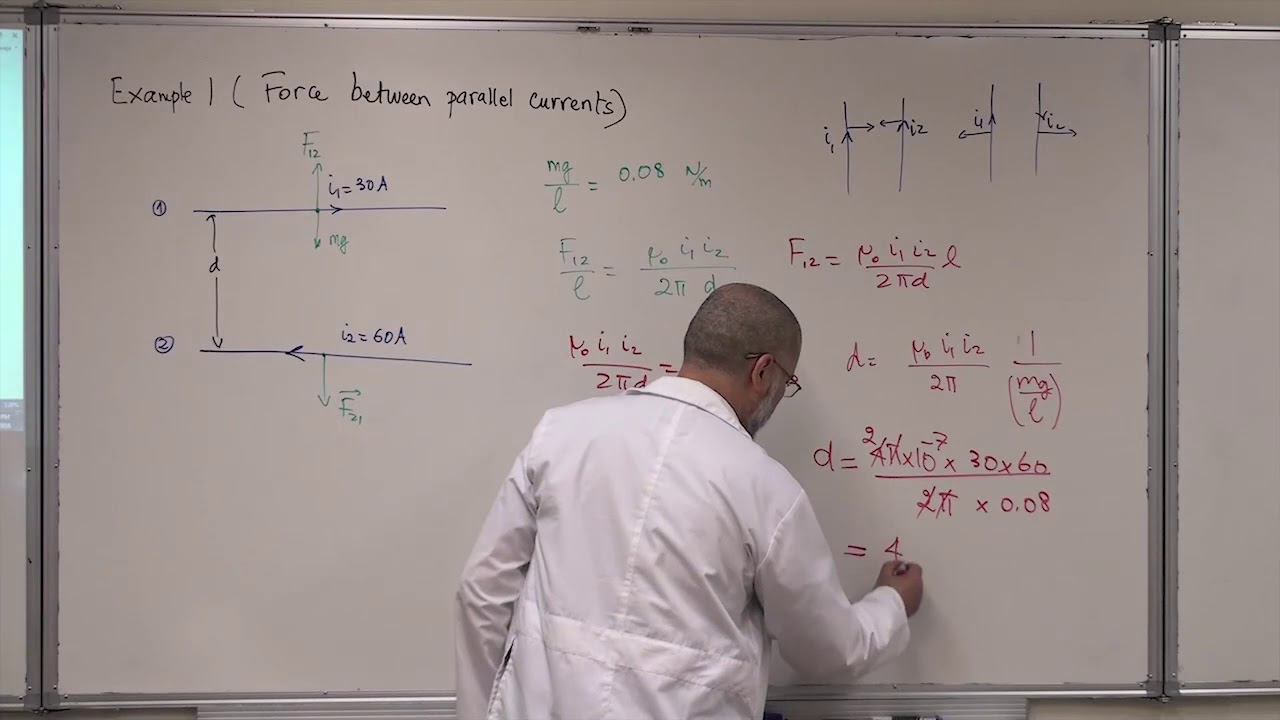 Example 1 ( Force between parallel currents)
F₁₂
i₁ = 30A
①
mg
d
②
i₂ = 60A
F⃗₂₁
mg/l = 0.08 N/m
F₁₂/l = μ₀ i₁ i₂ / 2π d
μ₀ i₁ i₂ / 2πd =
i₁ i₂ i₁ i₂
F₁₂ = μ₀ i₁ i₂ / 2πd l
d = μ₀ i₁ i₂ / 2π 1/(mg/l)
d = 2 4π×10⁻⁷ × 30×60 / 2π × 0.08
= 4